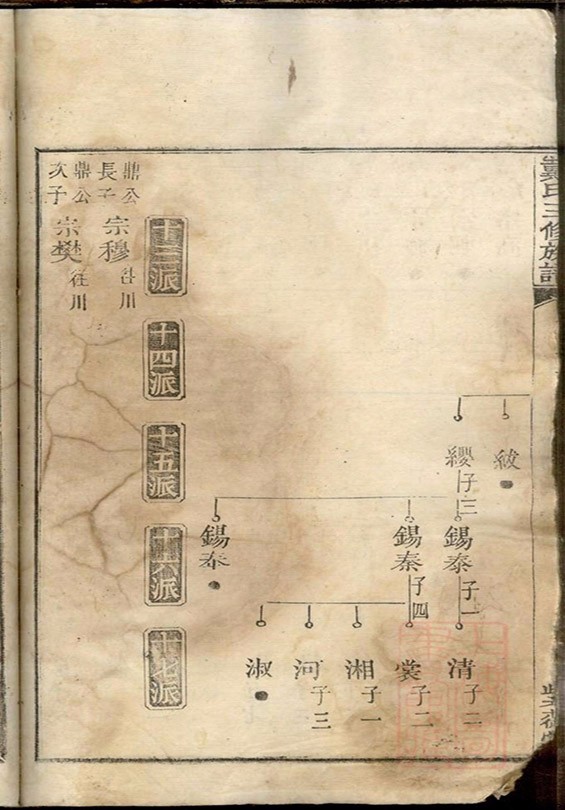 戴氏三修族譜
紱
纓 子三
錫泰 子一
錫秦 子四
錫奉
清 子二
裳 子二
湘 子一
河 子三
淑
十三派
十四派
十五派
十六派
十七派
鼎公長子 宗穆 往川
鼎公次子 宗樊 往川